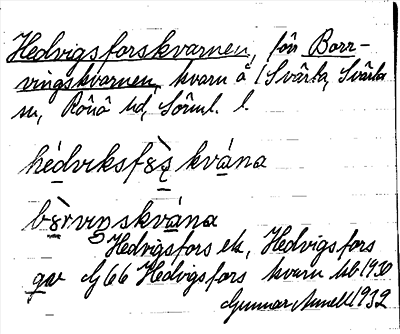 Hedvigsforskvarnen, förr Borr-
vingskvarnen, kvarn å 1 Svärta, Svärta
sn, Rönö hd, Sörml. l.
hèdviksfɷ̀ṣ kvána
bɷ̀rviŋskvána
Hedvigsfors ek, Hedvigsfors
gsv Gj 66 Hedvigsfors kvarn 1930
Gunnar 1932